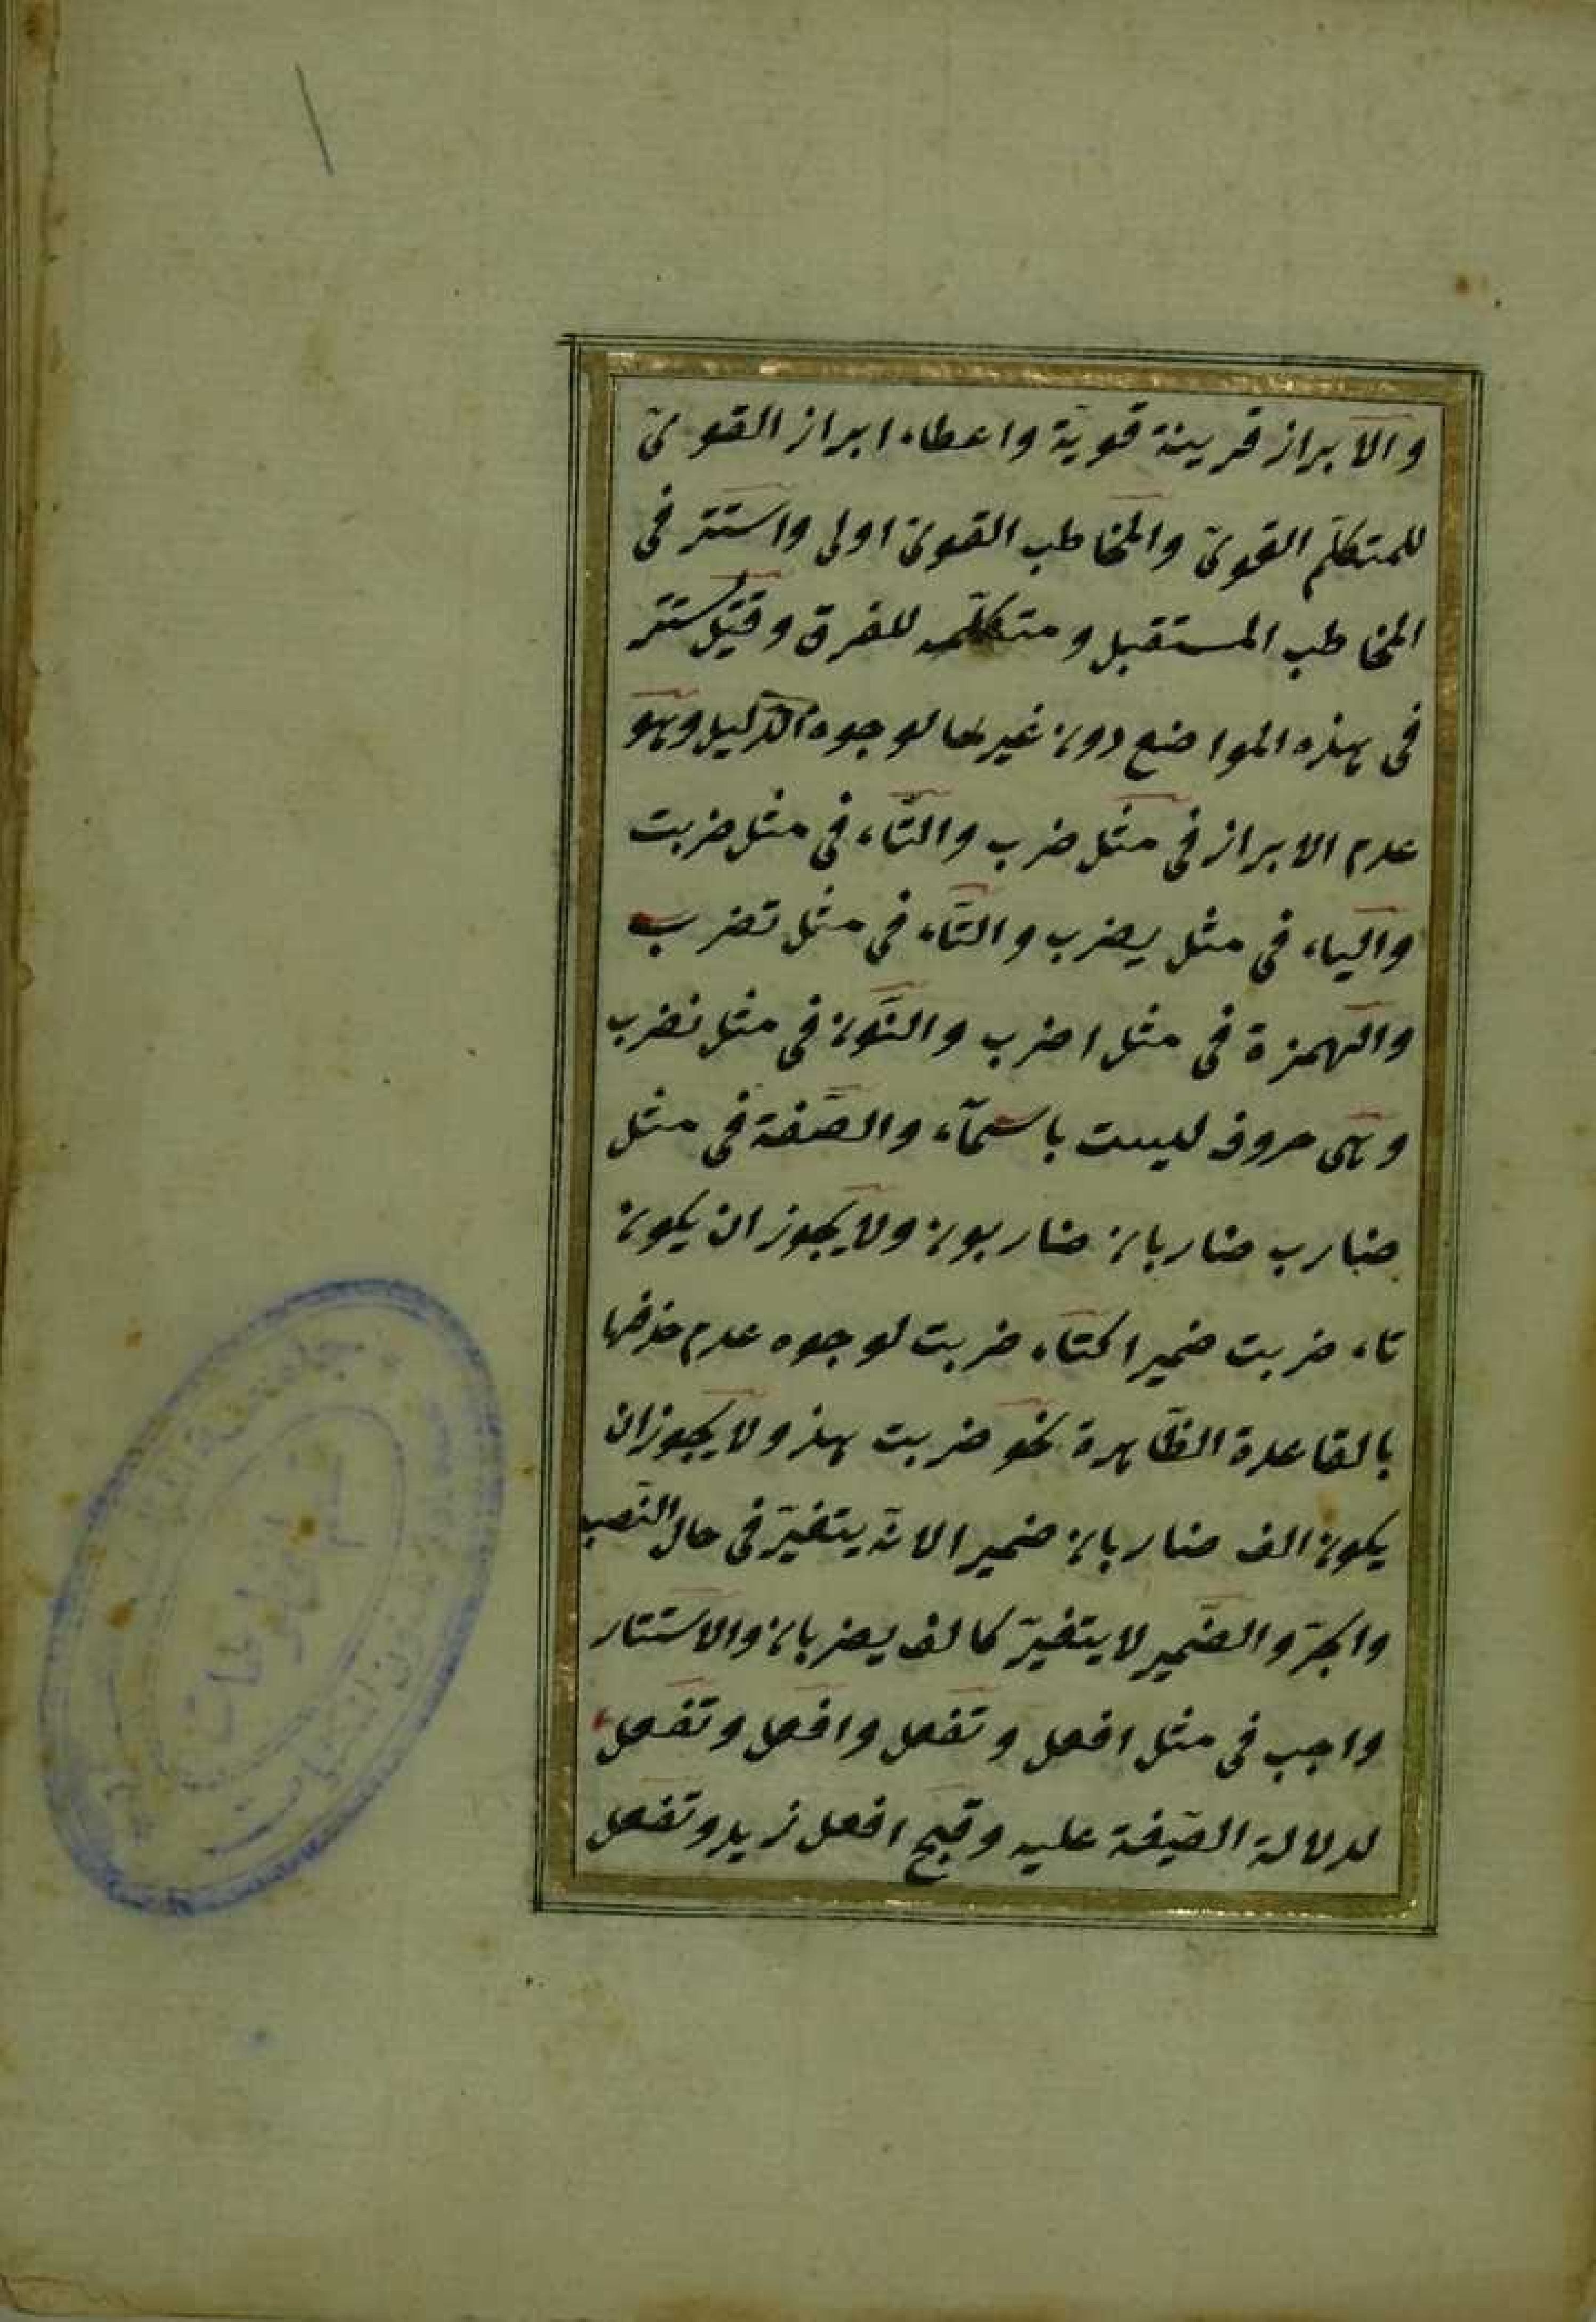 والابراز قرينة قويّة واعطاء ابراز القوىّ
للمتكلّم القوىّ والمخاطب القوىّ اولى واستتر فى
المخاطب المستقبل ومتكلّمه للفرق وقيل يستتر
فى هذه المواضع دون غيرها لوجود الدّليل وهو
عدم الابراز فى مثل ضرب والتّاء فى مثل ضربت
والياء فى مثل يضرب والتّاء فى مثل تضرب
والهمزة فى مثل اضرب والنّون فى مثل نضرب
وهى حروف ليست باسمآء والصّفة فى مثل
ضارب ضاربان ضاربون ولا يجوز ان يكون
تاء ضربت ضميرا كتاء ضربت لوجود عدم حذفها
بالقاعدة الظّاهرة نحو ضربت هند ولا يجوز ان
يكون الف ضاربان ضمير الانّه يتغيّر فى حال النّصب
والجرّ والضّمير لا يتغيّر كالف يضربان والاستتار
واجب فى مثل افعل وتفعل وافعل وتفعل
لدلالة الصّيغة عليه وقبح افعل زيد وتفعل